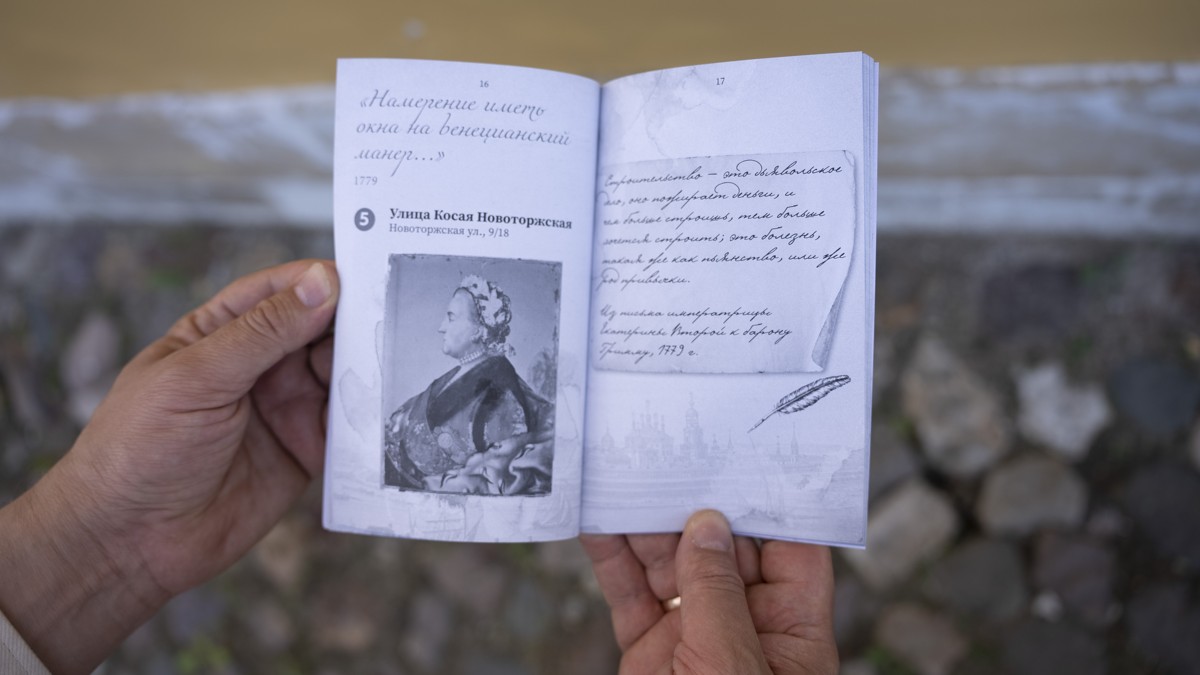 16
«Намерение иметь
окна на венецианский
манер...»
1779
5 Улица Косая Новоторжская
Новоторжская ул., 9/18
17
Строительство — это дьявольское
дело, оно пожирает деньги, и
чем больше строишь, тем больше
хочется строить; это болезнь,
такая же как пьянство, или же
род привычки.
Из письма императрицы
Екатерины Второй к барону
Гримму, 1779 г.